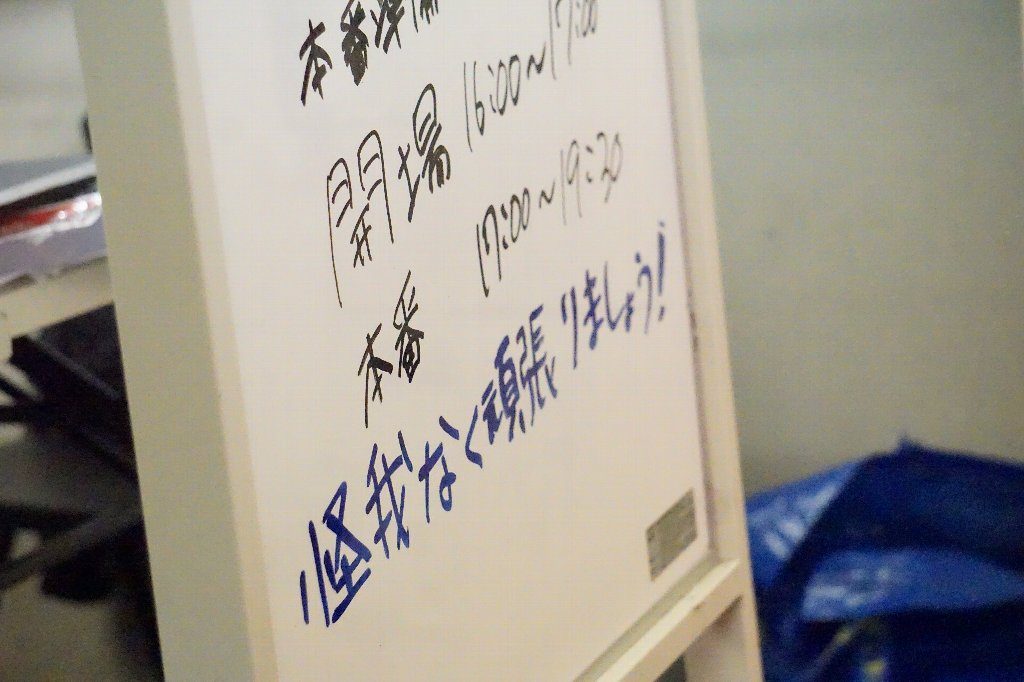 本番準備
開場 16:00~17:00
本番 17:00~19:30
怪我なく頑張りましょう!